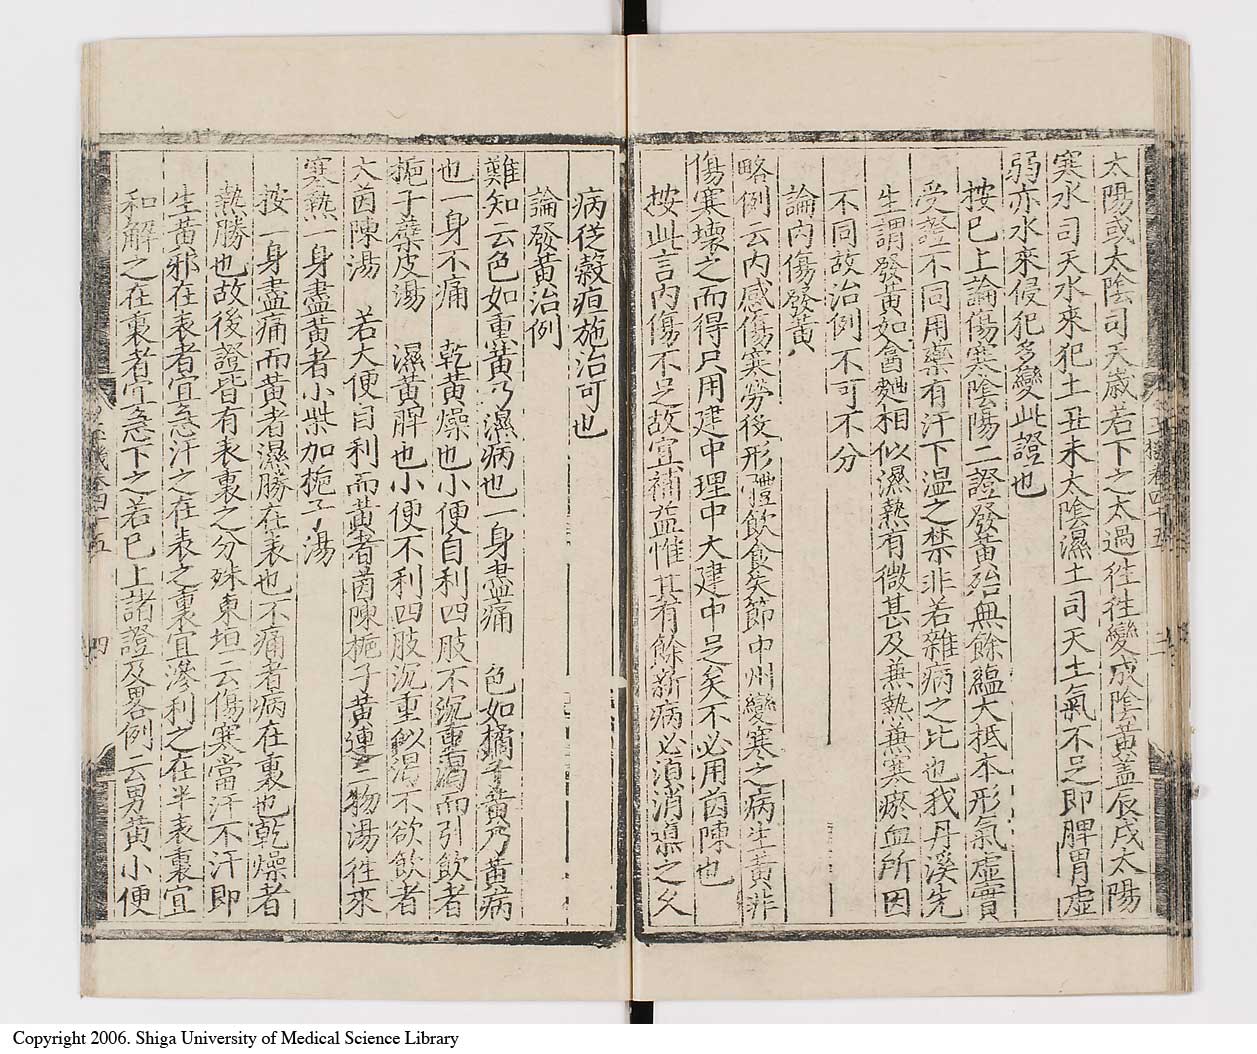 太陽或太陰司天歲若下之太過往往變成陰黃蓋辰戌太陽
寒水司天水來犯土丑未太陰濕土司天土氣不足即脾胃虛
弱亦水來侵犯多變此證也
按已上論傷寒陰陽二證發黃殆無餘蘊大抵本形氣虛實
受證不同用藥有汗下溫之禁非若雜病之比也我丹溪先
生謂發黃如盦麯相似濕熱有微甚及兼熱兼寒瘀血所因
不同故治例不可不分
論內傷發黃
略例云內感傷寒勞後形體飲食失節中州變寒之病生黃非
傷寒壞之而得只用建中理中大建中足矣不必用茵陳也
按此言內傷不足故宜補益惟其有餘新病必須消導之久
病從穀疸施治可也
論發黃治例
難知云色如熏黃乃濕病也一身盡痛 色如橘子黃乃黃病
也一身不痛 乾黃燥也小便自利四肢不沉重渴而引飲者
梔子蘗皮湯 濕黃脾也小便不利四肢沉重似渴不欲飲者
大茵陳湯 若大便自利而黃者茵陳梔子黃連三物湯往來
寒熱一身盡黃者小柴加梔子湯
按一身盡痛而黃者濕勝在表也不痛者病在裏也乾燥者
熱勝也故後證皆有表裏之分殊東垣云傷寒當汗不汗即
生黃邪在表者宜急汗之在表之裏宜滲利之在半表裏宜
和解之在裏者宜急下之若已上諸證及畧例云男黃小便
四
Copyright 2006. Shiga University of Medical Science Library